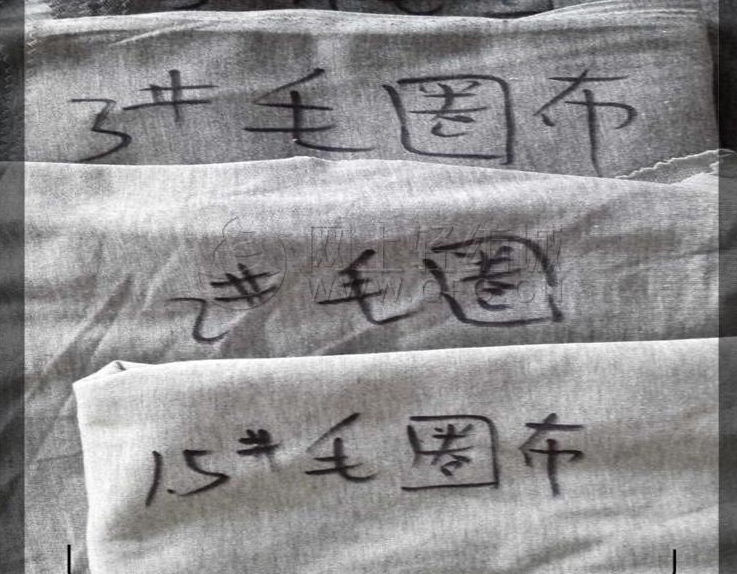 3# 毛圈布
2# 毛圈
1.5# 毛圈布